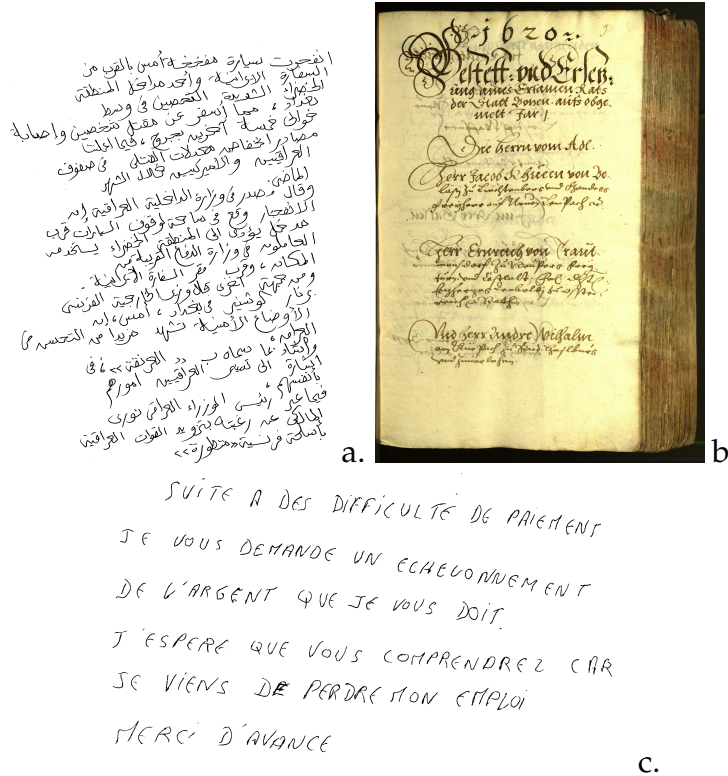 انفجرت سيارة مفخخة أمس بالقرب من
السفارة الإيرانية وأحد مداخل المنطقة
الخضراء الشديدة التحصين في وسط
بغداد، مما أسفر عن مقتل شخصين وإصابة
حوالي خمسة آخرين بجروح، فيما أعلنت
مصادر انخفاض معدلات القتلى في صفوف
العراقيين والأميركيين خلال الشهر
الماضي.
وقال مصدر في وزارة الداخلية العراقية إن
الانفجار وقع في ساحة لوقوف السيارات قرب
مدخل يؤدي إلى المنطقة الخضراء يستخدمه
العاملون في وزارة الدفاع القريبة من
المكان، وقرب مقر السفارة الإيرانية.
ومن جهة أخرى وزير الخارجية الفرنسي
برنار كوشنير في بغداد، أمس، إن
الأوضاع الأمنية تشهد مزيدا من التحسن في
العراق،
والتقد ما سماه ب »العرقنة«، في
إشارة إلى تسلم العراقيين أمورهم
بأنفسهم،
فيما عبر رئيس الوزراء العراقي نوري
المالكي عن رغبته بتزويد القوات العراقية
بأسلحة فرنسية »متطورة«
a.
1620
Bestett: vnd Ersen
ung aines Ersamen Rats
der Statt Bozen aufs obge
melt Jar
Die Herrn vom Adl.
Herr Jacob Khuen von Be
Herr Ernreich von Traut
Vnd herr Andre Wilhalm
b
SUITE A DES DIFFICULTÉ DE PAIEMENT
JE VOUS DEMANDE UN ECHELONNEMENT
DE L'ARGENT QUE JE VOUS DOIT.
J'ESPERE QUE VOUS COMPRENDREZ CAR
JE VIENS DE PERDRE MON EMPLOI
MERCI D'AVANCE
c.